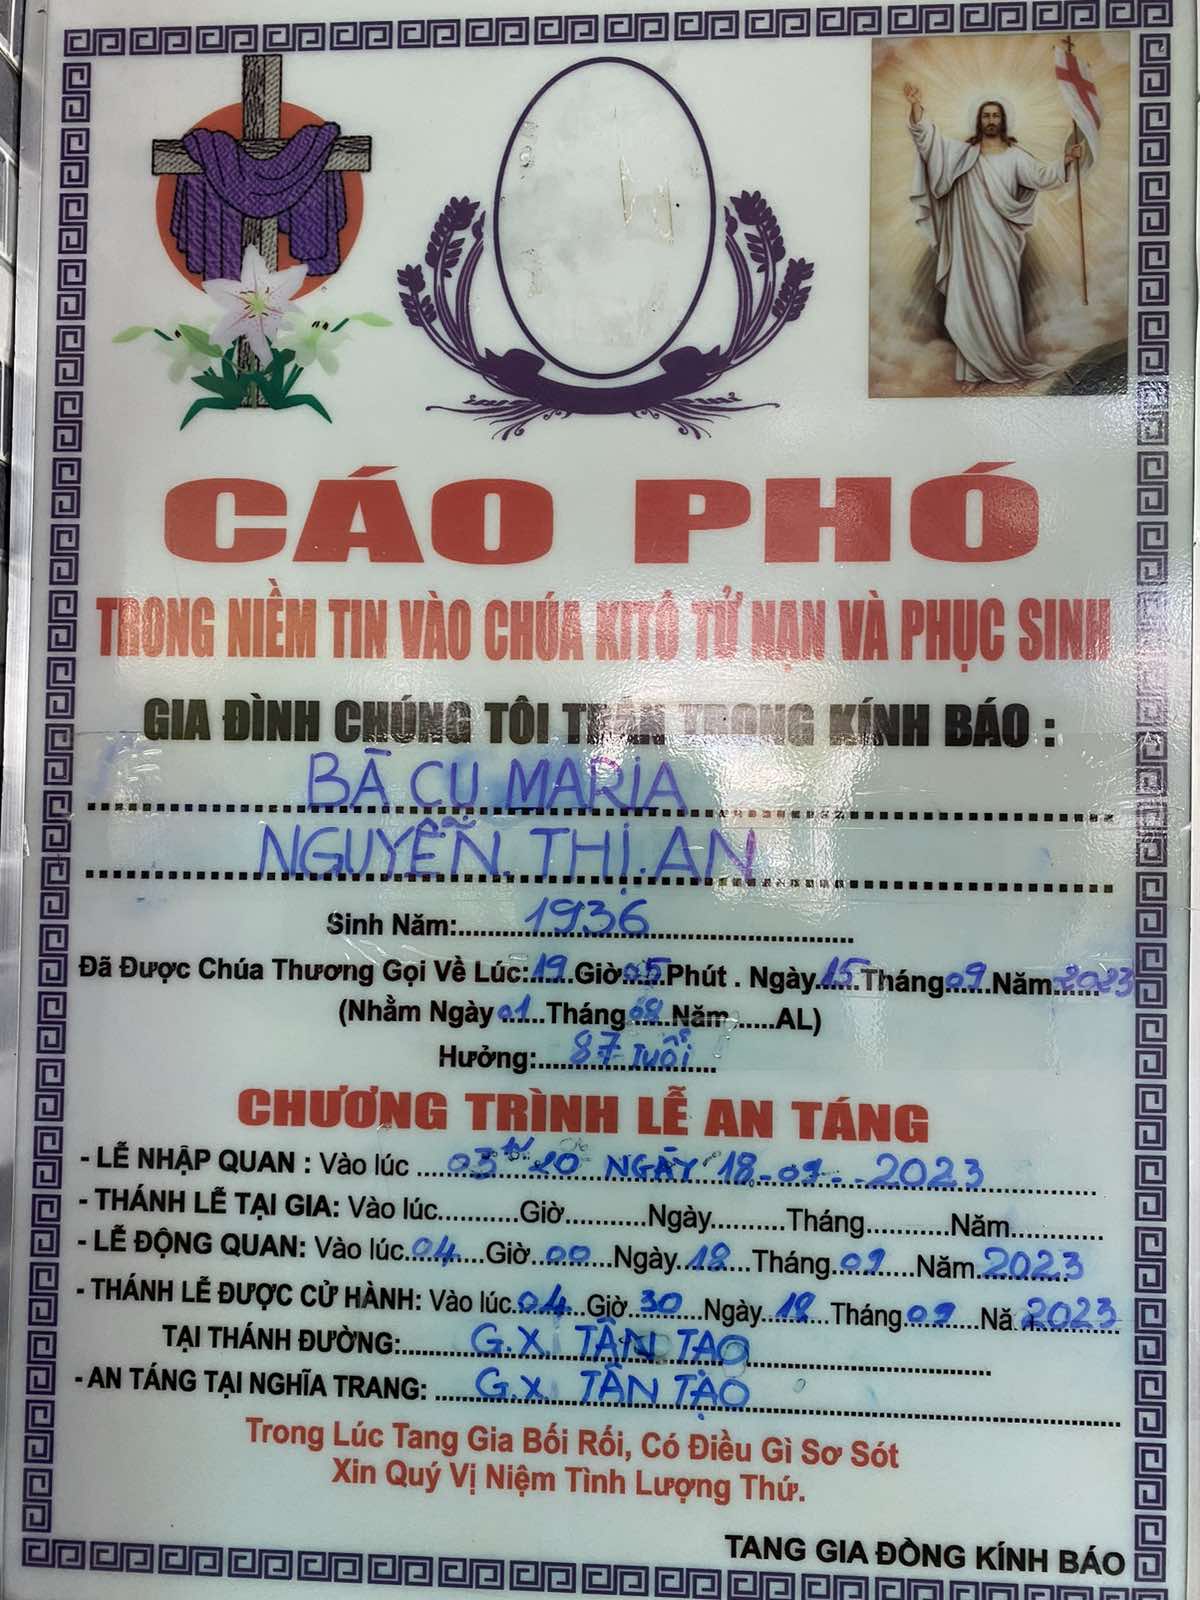 CÁO PHÓ
TRONG NIỀM TIN VÀO CHÚA KITÔ TỬ NẠN VÀ PHỤC SINH
GIA ĐÌNH CHÚNG TÔI TRÂN TRỌNG KÍNH BÁO :
BÀ CỤ MARIA
NGUYỄN. THỊ. AN
Sinh Năm:.....1936.....
Đã Được Chúa Thương Gọi Về Lúc:19.Giờ 05 Phút . Ngày.15.Tháng 09.Năm 2023
(Nhằm Ngày 01...Tháng 08.Năm .....AL)
Hưởng:...87 Tuổi...
CHƯƠNG TRÌNH LỄ AN TÁNG
- LỄ NHẬP QUAN : Vào lúc ....03 20 NGÀY 18-09-2023
- THÁNH LỄ TẠI GIA: Vào lúc..........Giờ..........Ngày.........Tháng..........Năm..........
- LỄ ĐỘNG QUAN: Vào lúc.04...Giờ.00...Ngày.18...Tháng.09...Năm.2023
- THÁNH LỄ ĐƯỢC CỬ HÀNH: Vào lúc.04..Giờ.30..Ngày.18..Tháng.09..Nă 2023
TẠI THÁNH ĐƯỜNG:........G.X. TÂN TẠO
- AN TÁNG TẠI NGHĨA TRANG: ....G.X. TÂN TẠO
Trong Lúc Tang Gia Bối Rối, Có Điều Gì Sơ Sót
Xin Quý Vị Niệm Tình Lượng Thứ.
TANG GIA ĐỒNG KÍNH BÁO